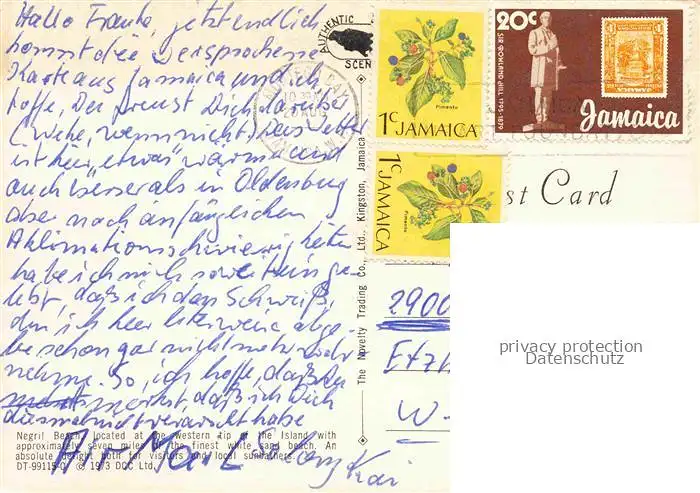 Hallo Frauke, jetzt endlich
kommt die versprochene
Karte aus Jamaica und ich
hoffe Du freust Dich darüber
(wehe, wenn nicht). Das Wetter
ist hier „etwas" wärmer und
auch besser als in Oldenburg
aber nach anfänglichen
Aklimationsschwierigkeiten
habe ich mich soweit einge-
lebt, daß ich den Schweiß,
den ich hier literweise abge-
be schon gar nicht mehr wahr-
nehme. So, ich hoffe daß Du
merkst daß ich Dich
diesmal nicht verarscht habe
Kai
Air-Mail
Negril Beach, located at the western tip of the Island with
approximately seven miles of the finest white sand beach. An
absolute delight both for visitors and local sunbathers.
DT-99115-C © 1973 DCC Ltd.
The Novelty Trading Co., Ltd., Kingston, Jamaica
AUTHENTIC
SCEN
20 AUG
JAMAICA W.
1c JAMAICA
Pimento
1c JAMAICA
Pimento
20c
SIR ROWLAND HILL 1795-1879
JAMAICA
Jamaica
st Card
2900
W-
privacy protection
Datenschutz